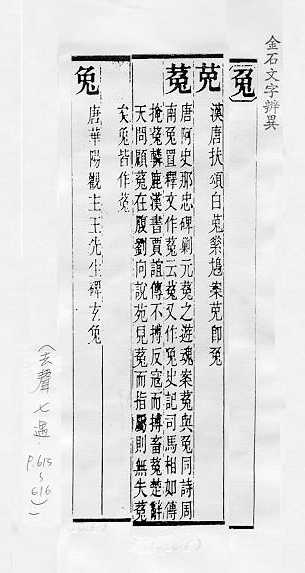 金石文字辨異
兔
莵
漢唐扶頌白莵素鳩案莵即兔
菟
唐阿史那忠碑剿元菟之遊魂案菟與兔同詩周
南兔罝釋文作菟云菟又作兔史記司馬相如傳
掩菟轔鹿漢書賈誼傳不搏反寇而搏畜菟楚辭
天問顧菟在腹劉向說苑見菟而指屬則無失菟
矣兔皆作菟
兔
唐華陽觀主王先生碑玄兔
(去聲七遇
P.615
616)